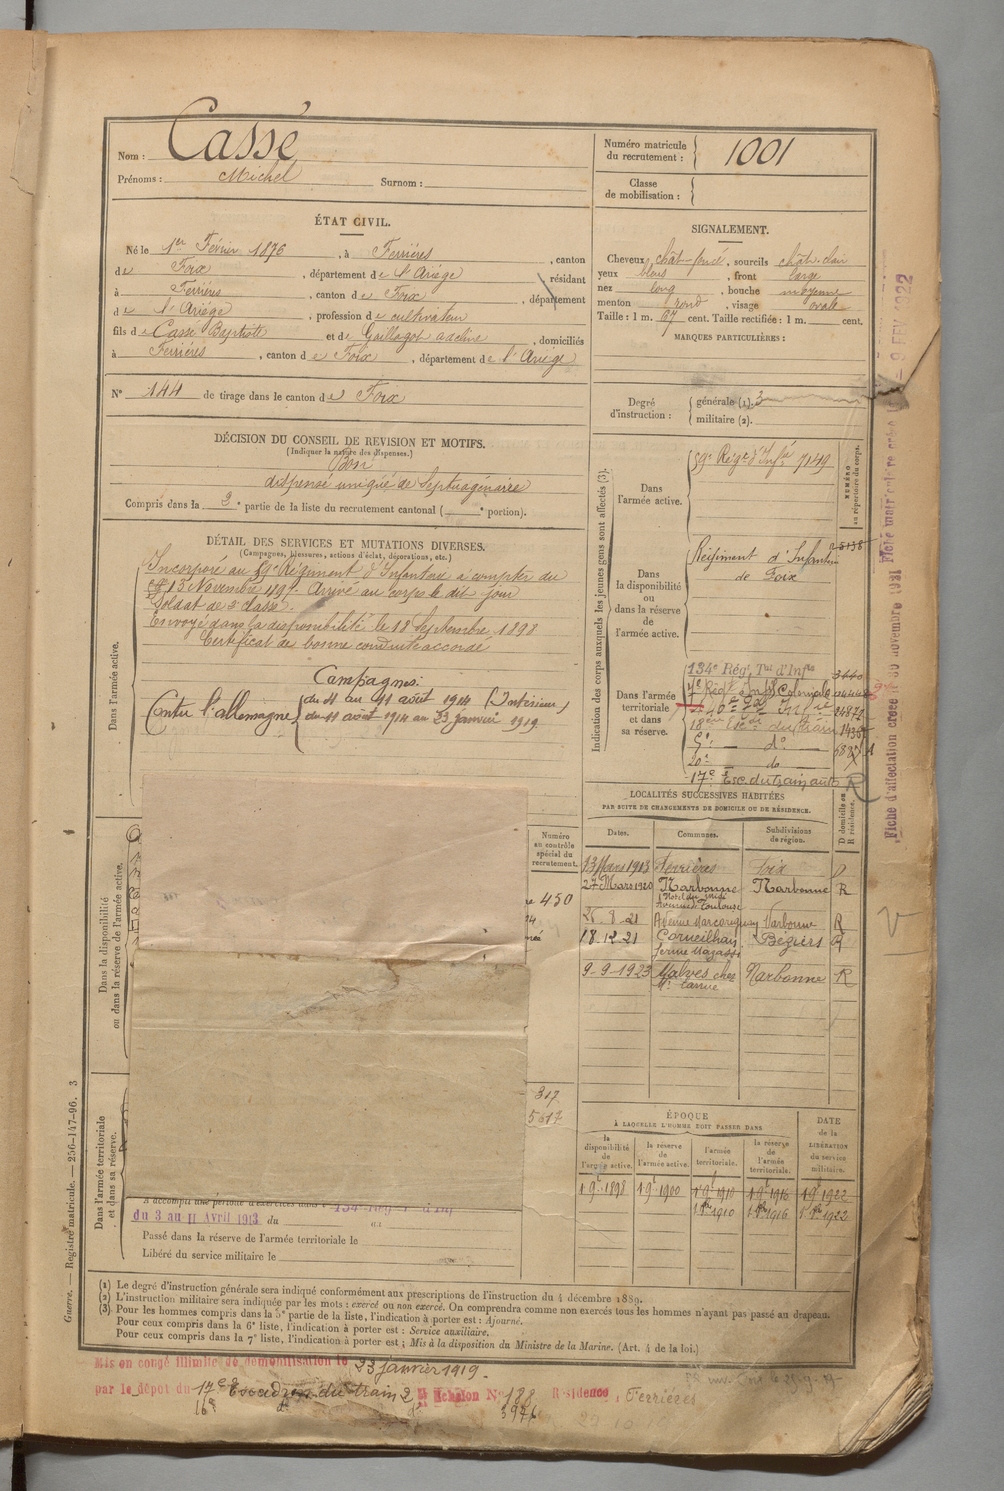 Nom : Cassé
Prénoms : Michel Surnom :
Numéro matricule du recrutement : 1001
Classe de mobilisation :
ÉTAT CIVIL.
Né le 1er Février 1876, à Ferrières, canton
de Foix, département de l'Ariège résidant
à Ferrières, canton de Foix département
de l'Ariège, profession de cultivateur
fils de Cassé Baptiste et de Gaillagot , domiciliés
à Ferrières, canton de Foix, département de l'Ariège
N° 144 de tirage dans le canton de Foix
DÉCISION DU CONSEIL DE REVISION ET MOTIFS.
(Indiquer la nature des dispenses.)
Bon
dispensé unique de Septuagénaire
Compris dans la 2e partie de la liste du recrutement cantonal ( e portion).
SIGNALEMENT.
Cheveux chât-foncé, sourcils chât-clair
yeux bleus, front large
nez long, bouche moyenne
menton rond, visage ovale
Taille : 1 m. 67 cent. Taille rectifiée : 1 m. cent.
MARQUES PARTICULIÈRES :
Degré d'instruction : générale (1). 3
militaire (2).
DÉTAIL DES SERVICES ET MUTATIONS DIVERSES.
(Campagnes, blessures, actions d'éclat, décorations, etc.)
Dans l'armée active.
Incorporé au 59e Régiment d'Infanterie à compter du
13 Novembre 1897. Arrivé au corps le dit jour
Soldat de 2e classe.
Envoyé dans la disponibilité le 18 Septembre 1898
Certificat de bonne conduite accordé
Campagnes :
Contre l'allemagne du 11 au 11 août 1914 (Intérieur)
du 11 août 1914 au 23 janvier 1919
Indication des corps auxquels les jeunes gens sont affectés (3).
NUMÉRO au répertoire du corps.
Dans l'armée active.
59e Régt d'Infie 7149
Dans la disponibilité ou dans la réserve de l'armée active.
Régiment d'Infanterie
de Foix
Dans l'armée territoriale et dans sa réserve.
134e Régt Tal d'Infie
7e Régt Infie Coloniale
18e Esc. du train
5e do
20e do
17e Esc. du train auto R
LOCALITÉS SUCCESSIVES HABITÉES
PAR SUITE DE CHANGEMENTS DE DOMICILE OU DE RÉSIDENCE.
D domicile ou R résidence.
Dates. Communes. Subdivisions de région.
13 Mars 1913 Ferrières Foix D
27 Mars 1920 Narbonne Narbonne R
Hôtel du midi
Avenue de Toulouse
26-8-21 Narbonne R
18.12.21 Corneilhan Béziers R
9-9-1923 Malves chez Narbonne R
Numéro au contrôle spécial du recrutement.
450
317
5617
Dans la disponibilité ou dans la réserve de l'armée active.
Dans l'armée territoriale et dans sa réserve.
ÉPOQUE
À LAQUELLE L'HOMME DOIT PASSER DANS
DATE de la LIBÉRATION du service militaire.
la disponibilité de l'armée active. la réserve de l'armée active. l'armée territoriale. la réserve de l'armée territoriale.
19 1898 19 1900 19 1910 19 1916 19 1922
1910 1916 1922
A accompli une période d'exercices dans
du 3 au 11 Avril 1913 du au
Passé dans la réserve de l'armée territoriale le
Libéré du service militaire le
(1) Le degré d'instruction générale sera indiqué conformément aux prescriptions de l'instruction du 4 décembre 1889.
(2) L'instruction militaire sera indiquée par les mots : exercé ou non exercé. On comprendra comme non exercés tous les hommes n'ayant pas passé au drapeau.
(3) Pour les hommes compris dans la 5e partie de la liste, l'indication à porter est : Ajourné.
Pour ceux compris dans la 6e liste, l'indication à porter est : Service auxiliaire.
Pour ceux compris dans la 7e liste, l'indication à porter est : Mis à la disposition du Ministre de la Marine. (Art. 4 de la loi.)
Mis en congé illimité de démobilisation le 23 janvier 1919.
par le dépôt du 17e Escadron du train 2e Echelon N° 188 Résidence : Ferrières
16e 3976
Guerre. — Registre matricule. — 256-147-96. 3
Fiche d'affectation créée le 30 novembre 1921 Fiche matriculaire créée le - 9 FEV 1922